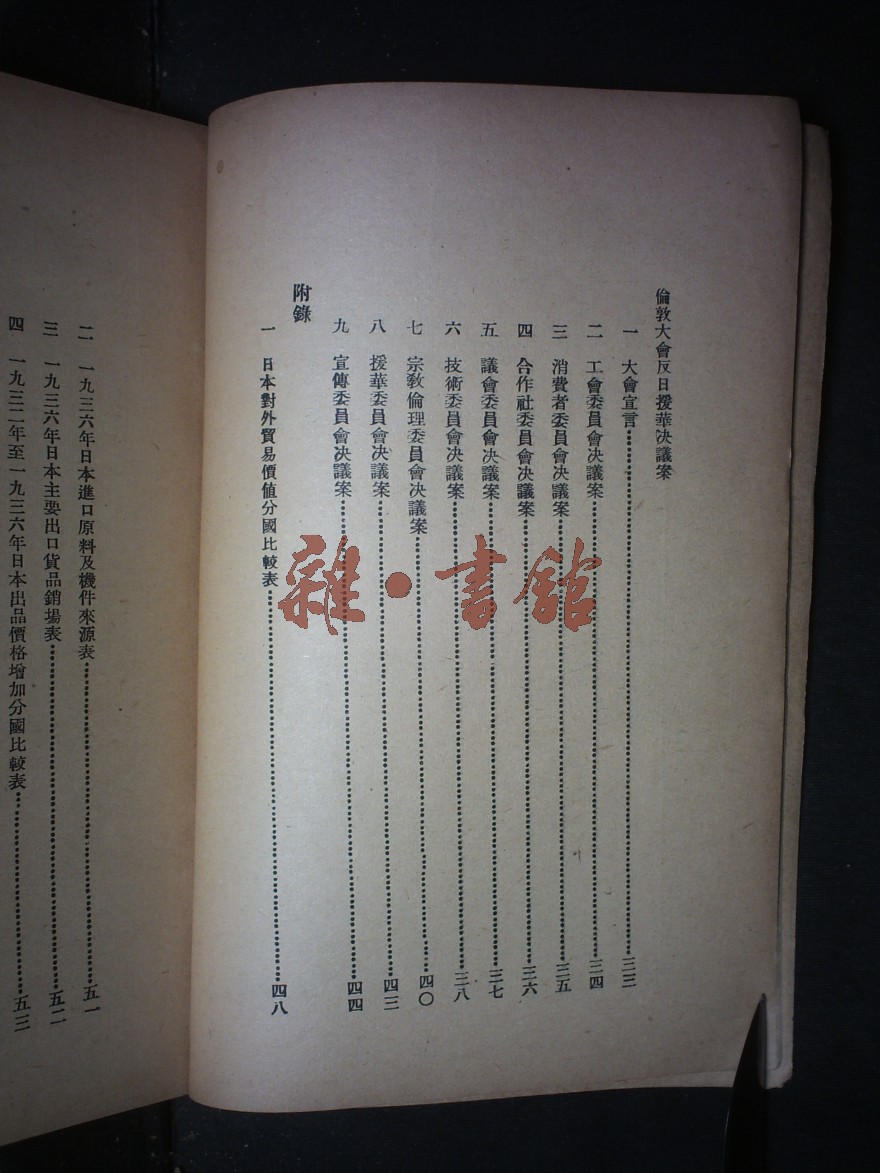 倫敦大會反日援華決議案
一 大會宣言 三三
二 工會委員會決議案 三四
三 消費者委員會決議案 三五
四 合作社委員會決議案 三六
五 議會委員會決議案 三七
六 技術委員會決議案 三八
七 宗敎倫理委員會決議案 四〇
八 援華委員會決議案 四三
九 宣傳委員會決議案 四四
附錄
一 日本對外貿易價値分國比較表 四八
二 一九三六年日本進口原料及機件來源表 五一
三 一九三六年日本主要出口貨品銷場表 五二
四 一九三二年至一九三六年日本出品價格增加分國比較表 五三
雜·書館